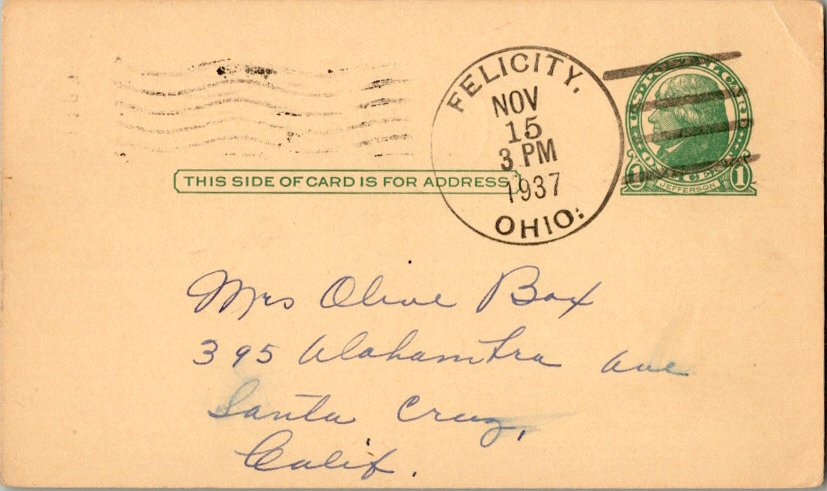 FELICITY,
NOV
15
3 PM
1937
OHIO.
U.S. POSTAL CARD
ONE CENT
1 JEFFERSON 1
THIS SIDE OF CARD IS FOR ADDRESS
Mrs Olive Box
395 Alahambra Ave
Santa Cruz,
Calif.